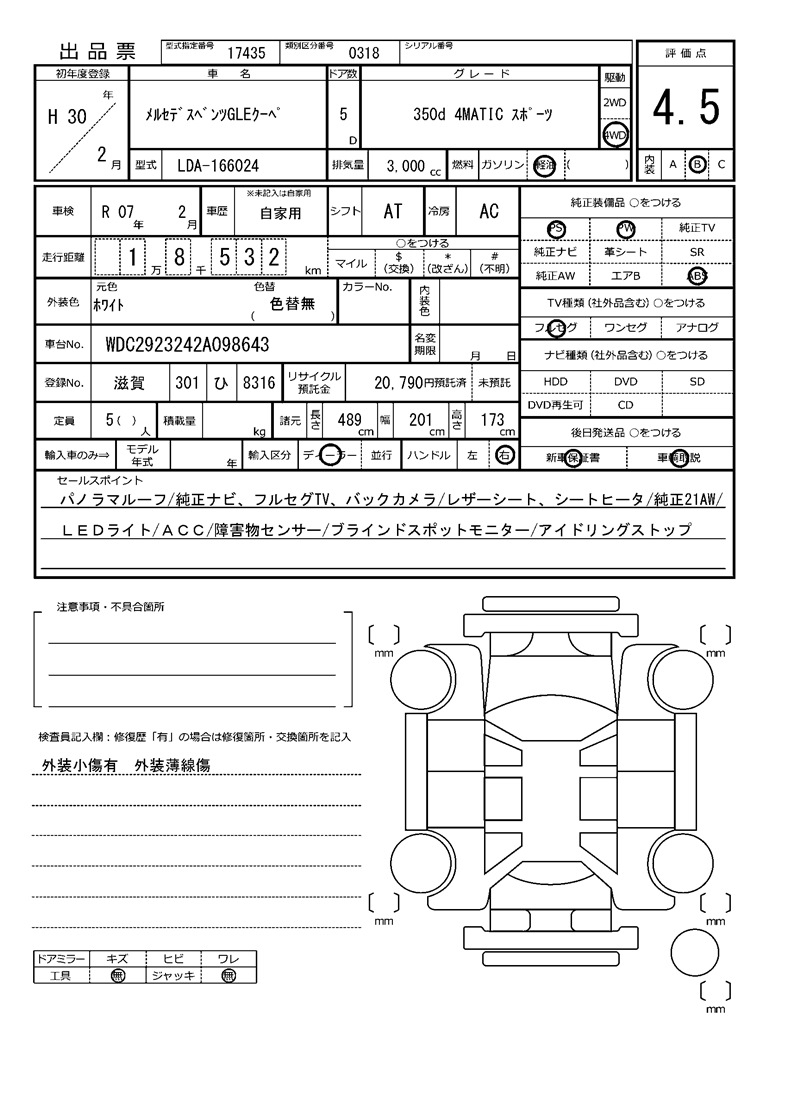 出品票 型式指定番号 17435 類別区分番号 0318 シリアル番号
評価点
4.5
内装 A B C
初年度登録 車名 ドア数 グレード 駆動
H 30 年 2 月 ﾒﾙｾﾃﾞｽﾍﾞﾝﾂGLEｸｰﾍﾟ 5 D 350d 4MATIC ｽﾎﾟｰﾂ 2WD 4WD
型式 LDA-166024 排気量 3,000 cc 燃料 ガソリン 軽油 ( )
車検 R 07 年 2 月 車歴 ※未記入は自家用 自家用 シフト AT 冷房 AC
走行距離 1 万 8 千 5 3 2 km ○をつける マイル $ (交換) * (改ざん) # (不明)
外装色 元色 ﾎﾜｲﾄ 色替 ( 色替無 ) カラーNo. 内装色
車台No. WDC2923242A098643 名変期限 月 日
登録No. 滋賀 301 ひ 8316 リサイクル預託金 20,790円預託済 未預託
定員 5( ) 人 積載量 kg 諸元 長さ 489 cm 幅 201 cm 高さ 173 cm
輸入車のみ⇒ モデル年式 年 輸入区分 ディーラー 並行 ハンドル 左 右
純正装備品 ○をつける
PS PW 純正TV
純正ナビ 革シート SR
純正AW エアB ABS
TV種類 (社外品含む) ○をつける
フルセグ ワンセグ アナログ
ナビ種類 (社外品含む) ○をつける
HDD DVD SD
DVD再生可 CD
後日発送品 ○をつける
新車保証書 車輌取説
セールスポイント
パノラマルーフ/純正ナビ、フルセグTV、バックカメラ/レザーシート、シートヒータ/純正21AW/
ＬＥＤライト/ＡＣＣ/障害物センサー/ブラインドスポットモニター/アイドリングストップ
注意事項・不具合箇所
検査員記入欄：修復歴「有」の場合は修復箇所・交換箇所を記入
外装小傷有 外装薄線傷
ドアミラー キズ ヒビ ワレ
工具 無 ジャッキ 無
mm mm
mm mm
mm